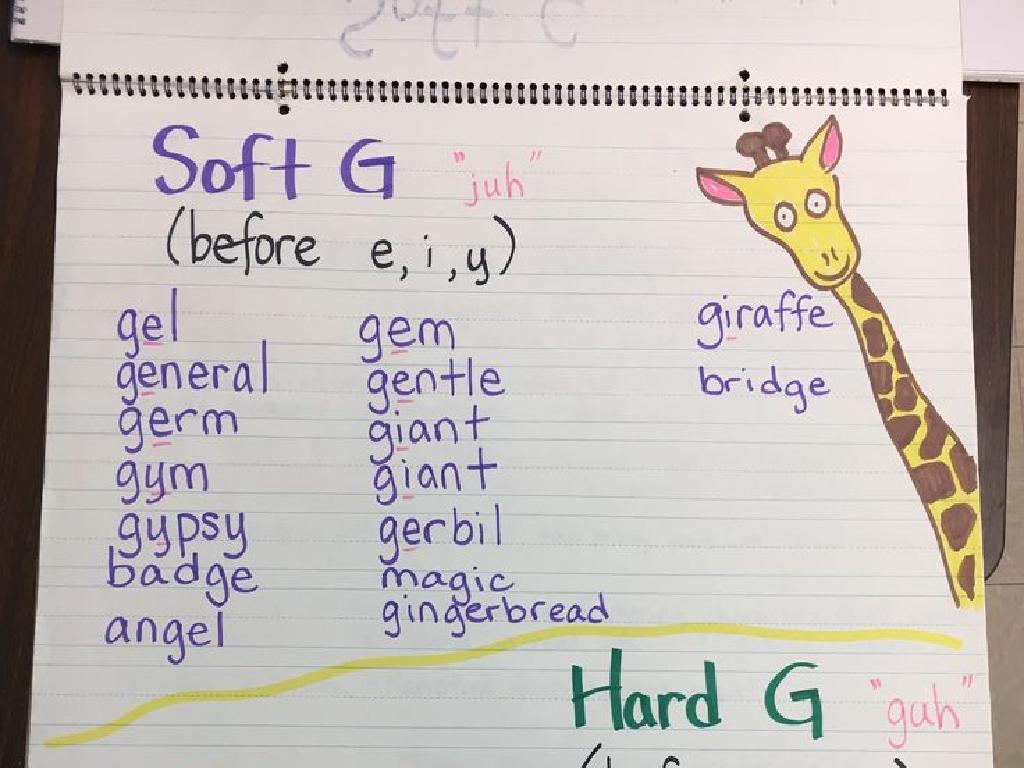 Soft G "juh"
(before e, i, y)
gel
general
germ
gym
gypsy
badge
angel
gem
gentle
giant
giant
gerbil
magic
gingerbread
giraffe
bridge
Hard G "guh"